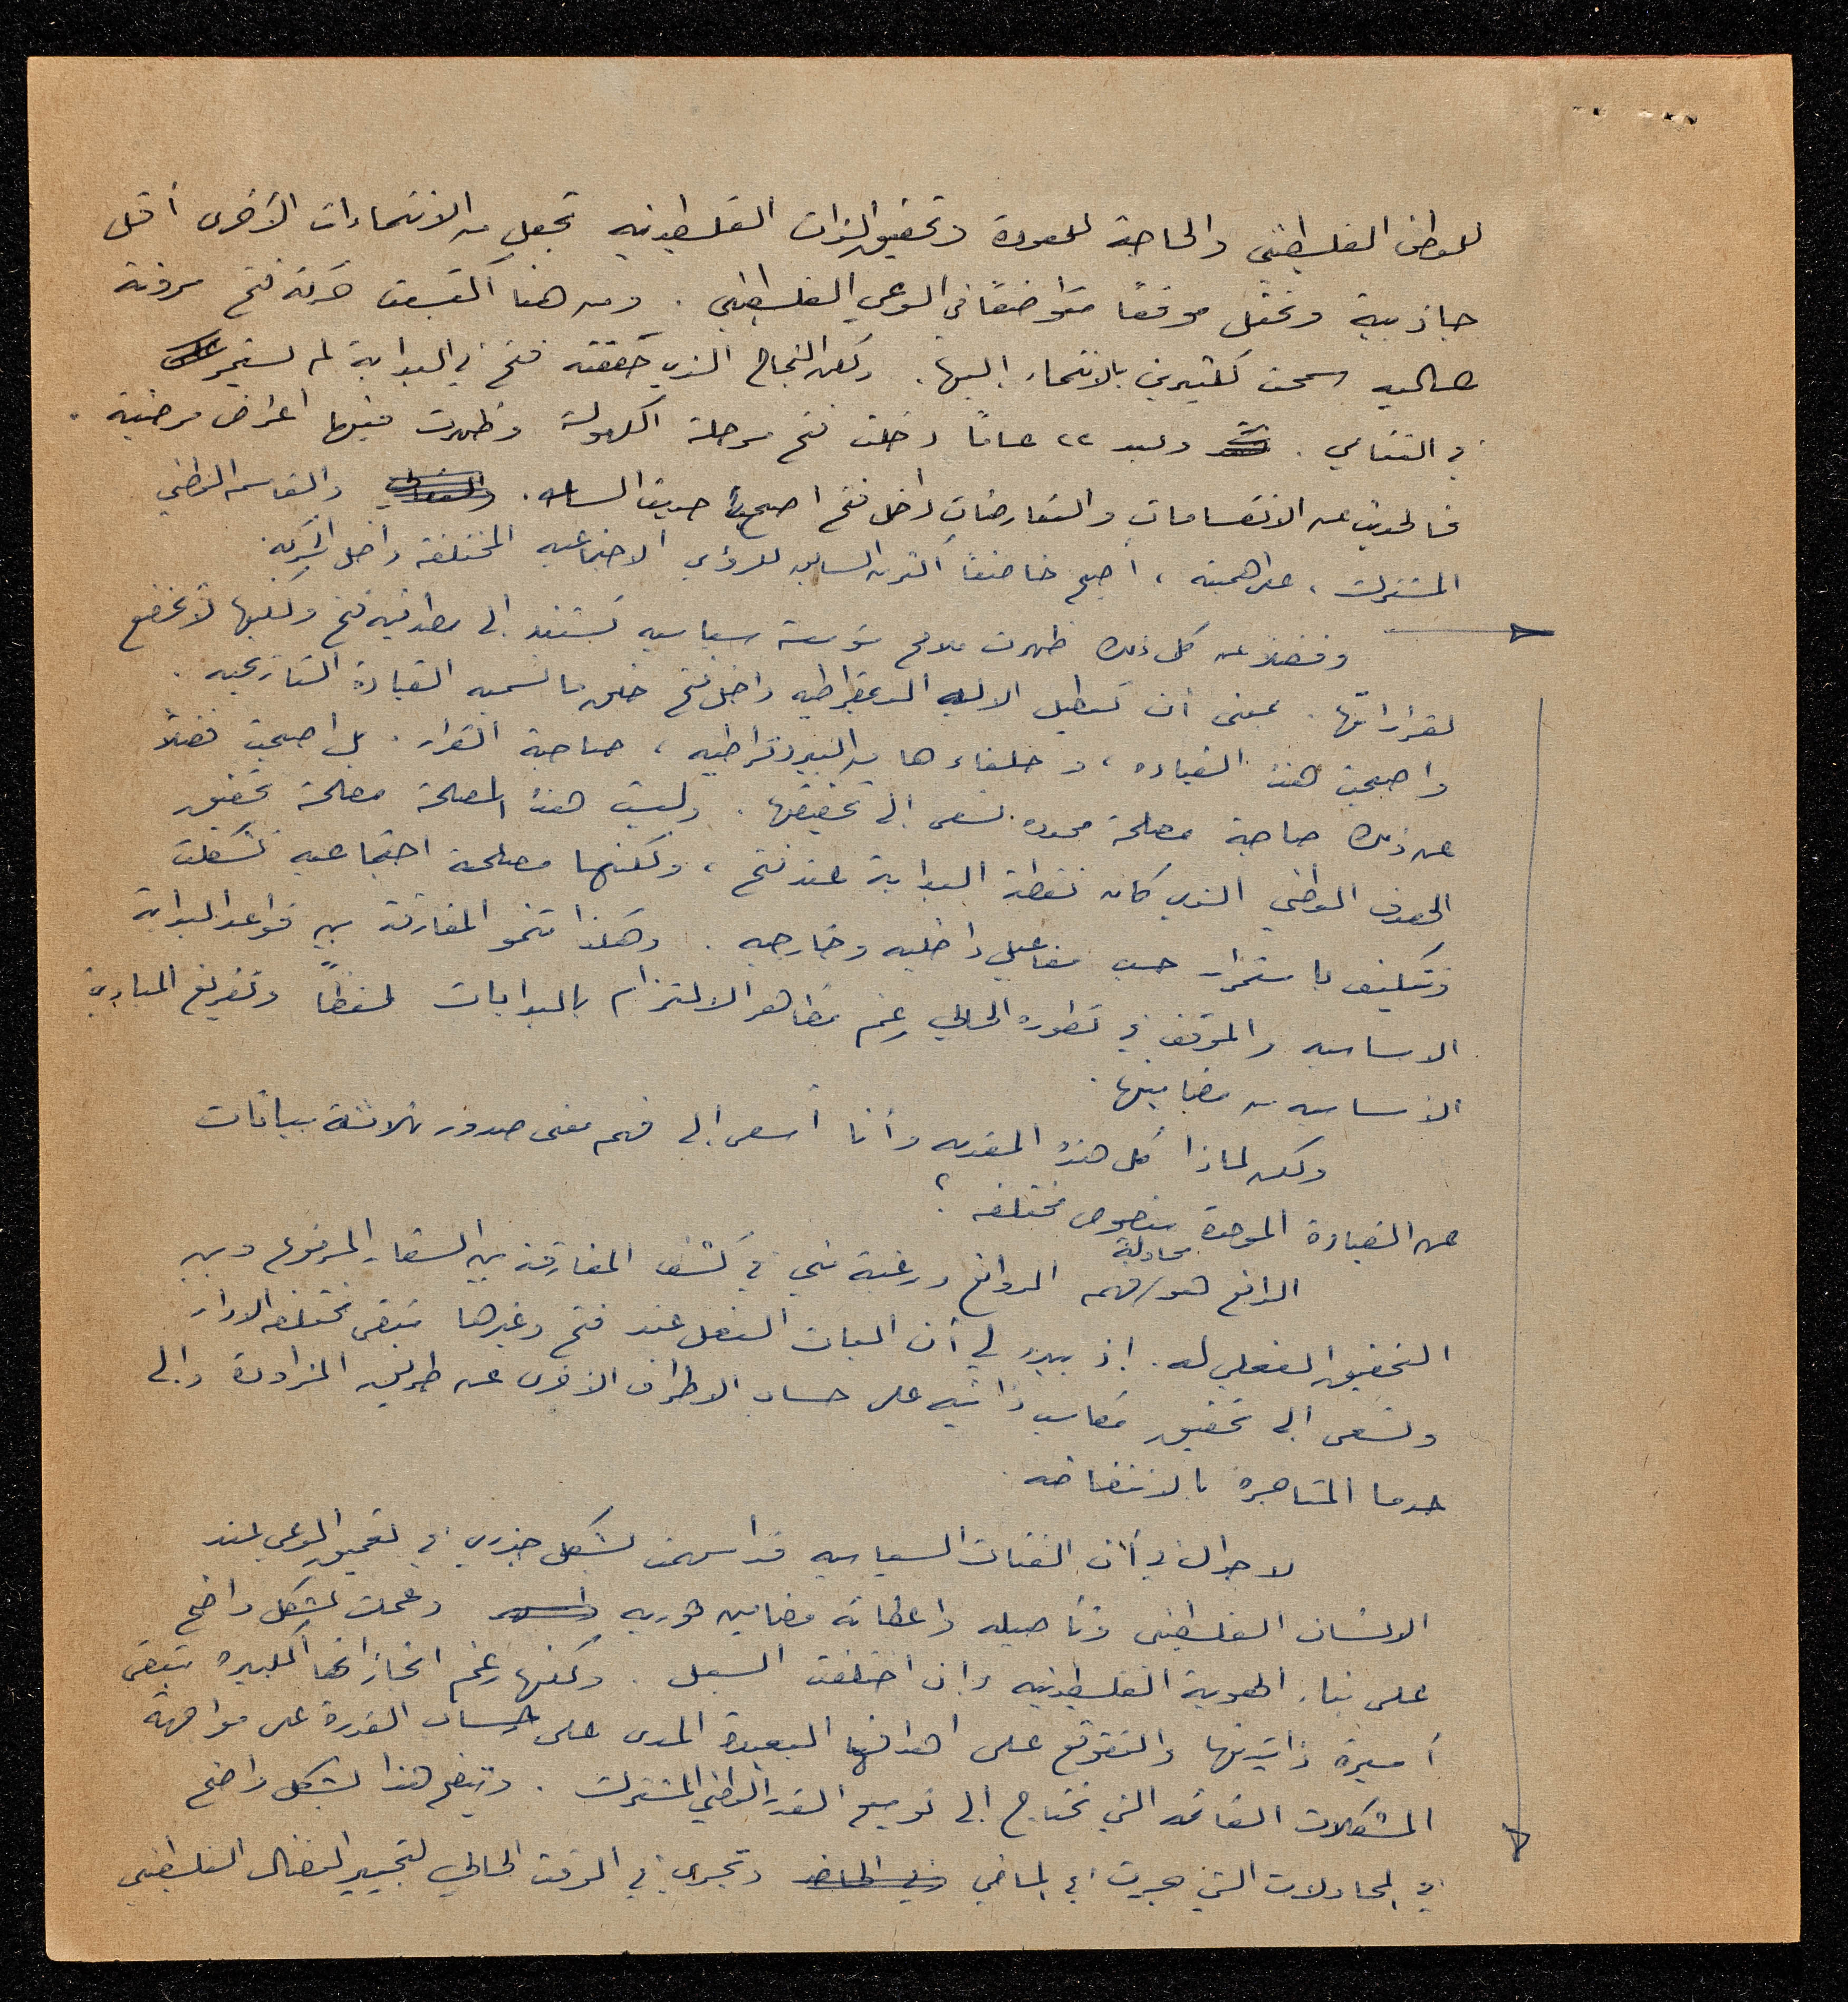 للوطن الفلسطيني والحاجة للعودة وتحقيق الذات الفلسطينيه تجعل من الانتماءات الأخرى أقل
جاذبية وتحتل موقعاً متواضعاً في الوعي الفلسطيني . ومن هنا اكتسبت حركة فتح مرونة
عاليه سمحت لكثيرين بالانتماء إليها . ولكن النجاح الذي حققته فتح في البداية لم يستمر
في التنامي . وبعد ٢٢ عاماً دخلت فتح مرحلة الكهولة وظهرت فيها اعراض مرضية .
فالحديث عن الانقسامات والتعارضات داخل فتح اصبح حديث الساعه . والقاسم الوطني
المشترك ، على اهميته ، أصبح خاضعاً أكثر من السابق للرؤى الاجتماعيه المختلفة داخل الحركه .
وفضلاً عن كل ذلك ظهرت ملامح مؤسسة سياسيه تستند الى مصداقيه فتح ولكنها لا تخضع
لقراراتها . بمعنى أن تعطيل الاليه الديمقراطيه داخل فتح خلق ما نسميه القيادة التاريخيه .
واصبحت هذه القياده ، وحلفاءها من البيروقراطيه ، صاحبة القرار . بل اصبحت فضلاً
عن ذلك صاحبة مصلحة محدده تسعى الى تحقيقها . وليست هذه المصلحة مصلحة تحقيق
الهدف الوطني الذي كان نقطة البداية عند فتح ، ولكنها مصلحة اجتماعيه تشكلت
وتتكيف باستمرار حسب مفاعيل داخليه وخارجيه . وهكذا تنمو المفارقة بين قواعد البداية
الاساسيه والموقف في تطوره الحالي رغم مظاهر الالتزام بالبدايات لفظاً وتفريغ المبادئ
الأساسيه من مضامينها .
ولكن لماذا كل هذه المقدمه وأنا أسعى الى فهم معنى صدور ثلاثة بيانات
عن القيادة الموحدة بنصوص مختلفه ؟
الدافع هو محاولة فهم الدوافع ورغبة مني في كشف المفارقة بين الشعار المرفوع وبين
التحقيق الفعلي له . إذ يبدو لي أن اليات الفعل عند فتح وغيرها تبقى مختلفه الادوار
وتسعى الى تحقيق مكاسب ذاتيه على حساب الاطراف الاخرى عن طريق المزاودة والى
حدما المتاجرة بالانتفاضه .
لا جدال في أن الفئات السياسيه قد أسهمت بشكل جذري في تعميق الوعي عند
الانسان الفلسطيني وتأصيله واعطائه مضامين ثوريه وعملت بشكل واضح
على بناء الهوية الفلسطينيه وإن اختلفت السبل . ولكنها رغم انجازاتها الكبيره تبقى
أسيرة ذاتيتها والتقوقع على اهدافها البعيدة المدى على حساب القدرة على مواجهة
المشكلات القائمه التي تحتاج الى توسيع القدر الوطني المشترك . ويتضح هذا بشكل واضح
في المحاولات التي جرت في الماضي وتجري في الوقت الحالي لتجيير النضال الفلسطيني